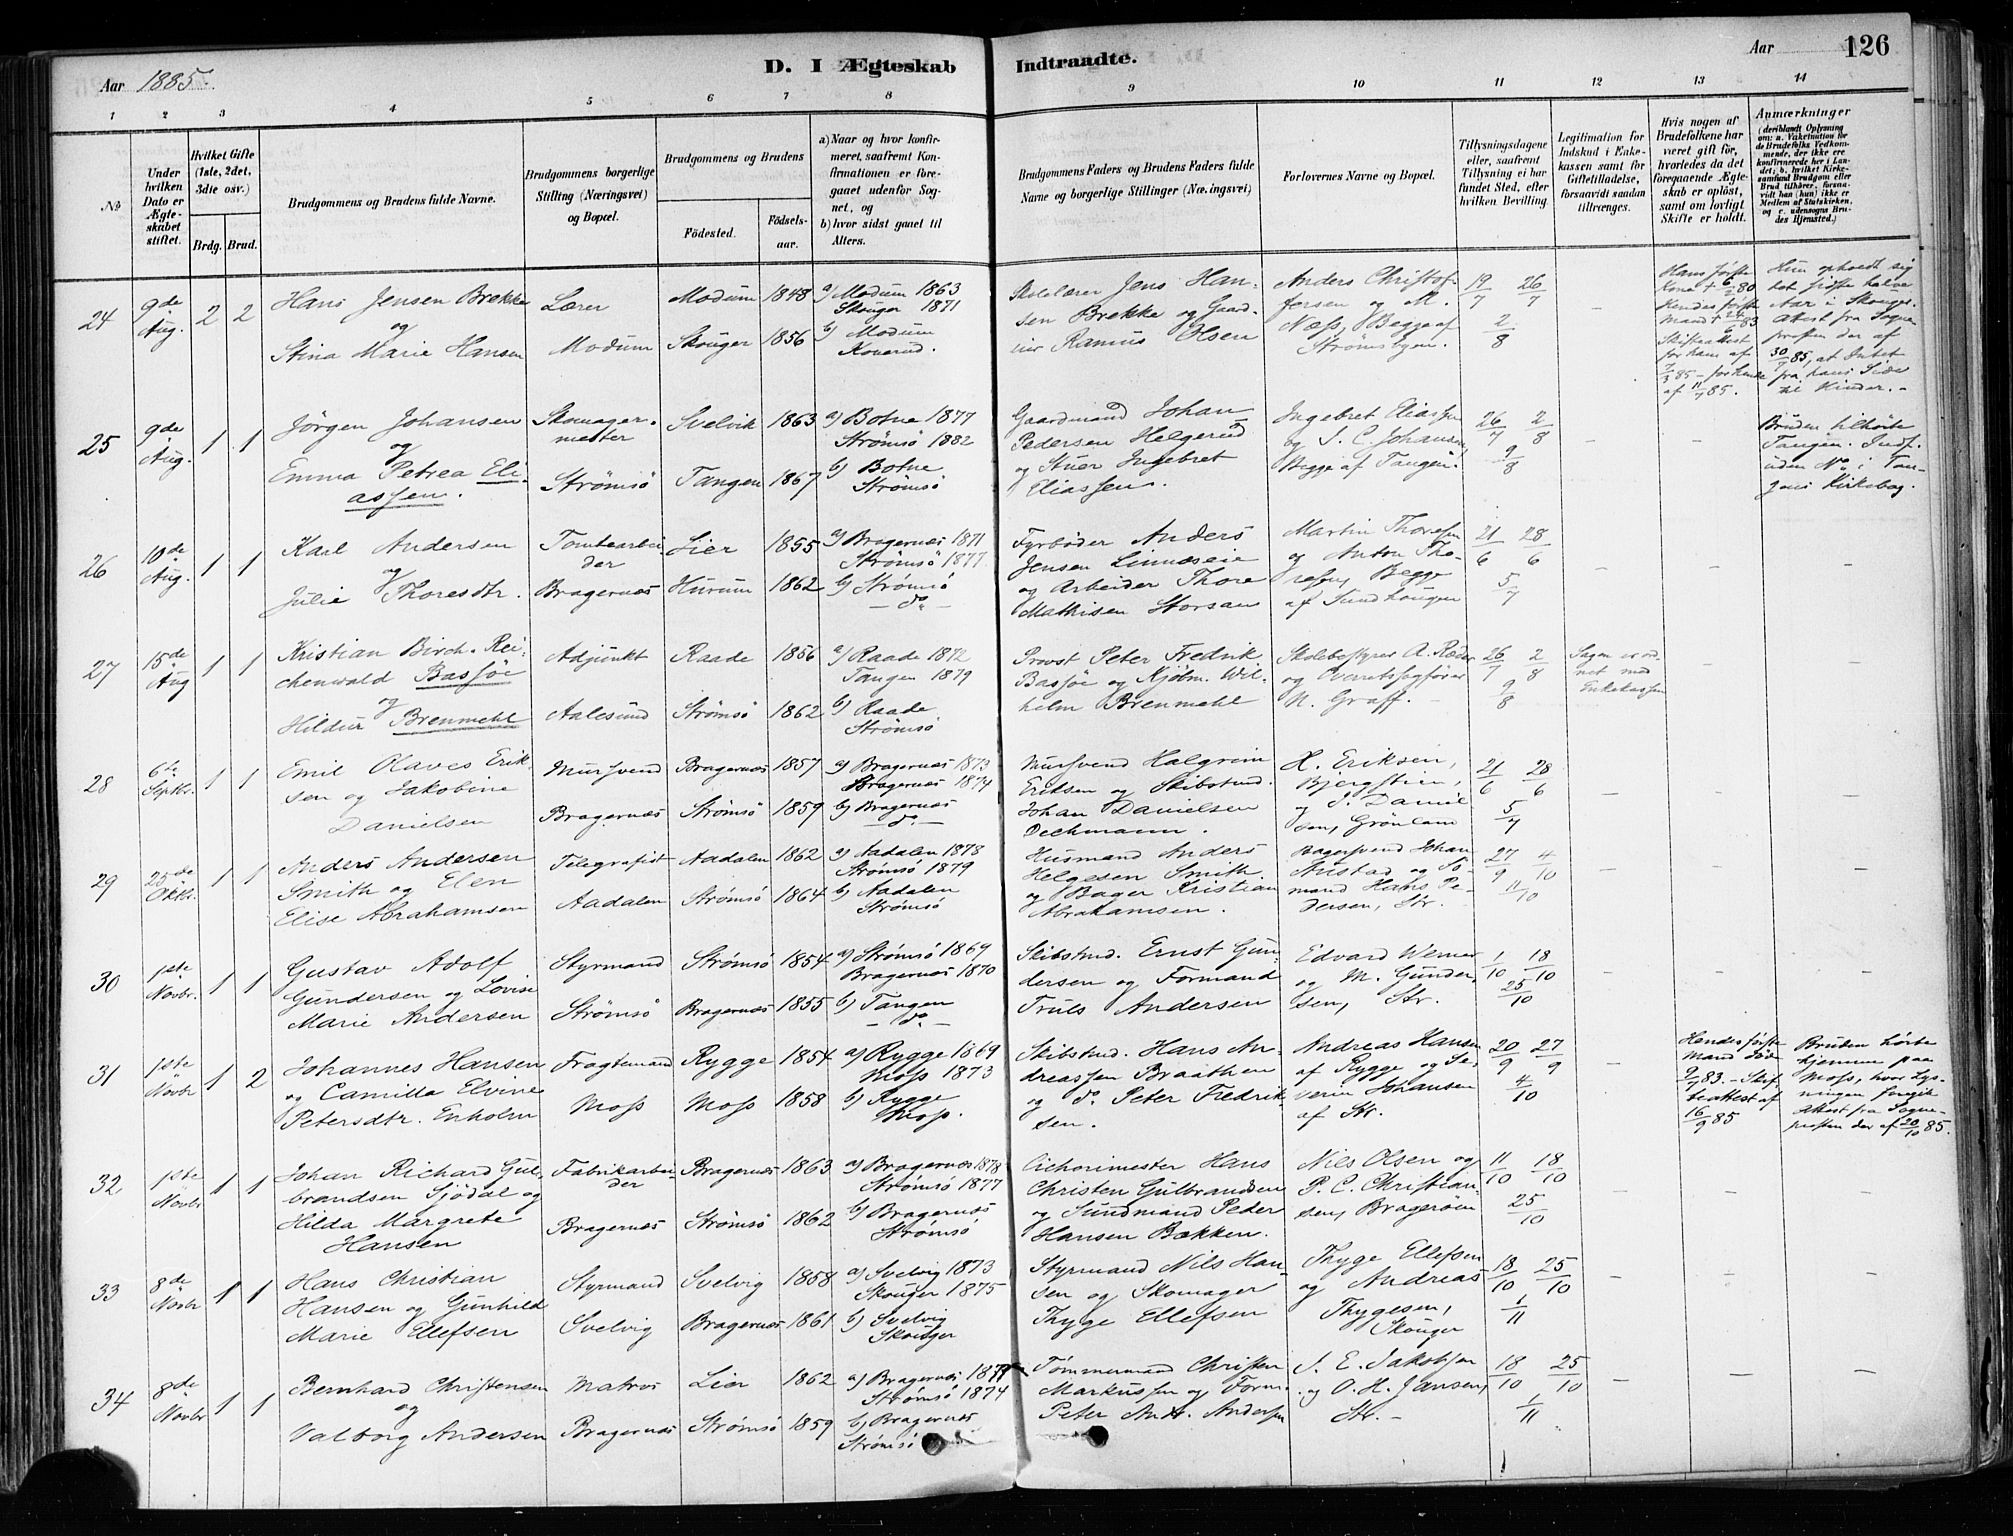 Aar 1885.
D. I Ægteskab Indtraadte.
Aar 126
1 2 3 4 5 6 7 8 9 10 11 12 13 14
No
Under hvilken Dato er Ægteskabet stiftet.
Hvilket Gifte (1ste, 2det, 3die osv.)
Brdg. Brud.
Brudgommens og Brudens fulde Navne.
Brudgommens borgerlige Stilling (Næringsvei) og Bopæl.
Brudgommens og Brudens
Fødested.
Fødselsaar.
a) Naar og hvor konfirmeret, saafremt Konfirmationen er foregaaet udenfor Sognet, og
b) hvor sidst gaaet til Alters.
Brudgommens Faders og Brudens Faders fulde Navne og borgerlige Stillinger (Næringsvei)
Forlovernes Navne og Bopæl.
Tillysningsdagene eller, saafremt Tillysning ei har fundet Sted, efter hvilken Bevilling.
Legitimation for Indskud i Enkekassen samt for Giftetilladelse, forsaavidt saadan tiltrænges.
Hvis nogen af Brudefolkene har været gift før, hvorledes da det foregaaende Ægteskab er opløst, samt om lovligt Skifte er holdt.
Anmærkninger
(deriblandt Oplysning om: a. Vakcination for de Brudefolks Vedkommende, der ikke ere konfirmerede her i Landet; b. hvilket Kirkesamfund Brudgom eller Brud tilhører, forsaavidt han (hun) ikke er Medlem af Statskirken, og c. udensogns Brudes Hjemsted.)
24 9de Aug. 2 2
Hans Jensen Brekke
og
Stina Marie Hansen
Lærer
Modum
Modum 1848
Skouger 1856
a) Modum 1863
Skouger 1871
b) Modum
Konerud.
Skolelærer Jens Han-
sen Brekke og Gaard-
eier Ramus Olsen
Anders Christof-
fersen og M.
Næss, Begge af
Strømsbyen.
19/7 26/7
2/8
Hans første
Kone † 6/2 80
Hendes første
Mand † 24/6 83
Skifteattest
for ham af
7/3 85 – for hende
af 11/7 85.
Hun opholdt sig
det sidste halve
Aar i Skouger.
Attest fra Sogne-
presten der af
30/7 85, at Intet
fra hans Side
til Hinder. -
25 9de Aug. 1 1
Jörgen Johansen
og
Emma Petrea Eli-
assen.
Skomager-
mester
Strömsö
Svelvik 1863
Tangen 1867
a) Botne 1877
Strömsö 1882
b) Botne
Strömsö
Gaardmand Johan
Pedersen Helgerud
og Stuer Ingebret
Eliassen.
Ingebret Eliassen
og J. C. Johansen
Begge af Tangen.
26/7 2/8
9/8
Bruden tilhörte
Tangen. Indf.
uden No i Tan-
gens Kirkebog.
26 10de Aug. 1 1
Karl Andersen
og
Julie Thoresdtr.
Tomtearbei-
der
Bragernæs
Lier 1855
Hurum 1862
a) Bragernæs 1871
Strömsö 1877
b) Strömsö
– do –
Fyrböder Anders
Jensen Linnæseie
og Arbeider Thore
Mathisen Storsan
Martin Thoresen
og Anton Tho-
resen, Begge
af Sundhaugen
21/6 28/6
5/7
27 15de Aug 1 1
Kristian Birch-Rei-
chenwald Bassöe
og
Hildur Brenmehl
Adjunkt
Aalesund
Raade 1856
Strömsö 1862
a) Raade 1872
Tangen 1879
b) Raade
Strömsö
Provst Peter Fredrik
Bassöe og Kjöbm. Wil-
helm Brenmehl
Skolebestyrer A. Ræder
og Overretssagförer
N. Graff. -
26/7 2/8
9/8
Sagen er ord-
net med
Enkekassen
28 6te Septbr. 1 1
Emil Olaves Erik-
sen og Jakobine
Danielsen
Mursvend
Bragernæs
Bragernæs 1857
Strömsö 1859
a) Bragernæs 1873
Bragernæs 1874
b) Bragernæs
– do –
Mursvend Halgrim
Eriksen og Skibstmd.
Johan Danielsen
Dechmann.
H. Eriksen,
Bjergstien,
og J. Daniel
sen, Grönland
21/6 28/6
5/7
29 25de Oktbr. 1 1
Anders Andersen
Smith og Elen
Elise Abrahamsen
Telegrafist
Aadalen
Aadalen 1862
Strømsö 1864
a) Aadalen 1878
Strömsö 1879
b) Aadalen
Strömsö
Husmand Anders
Helgesen Smith.
og Bager Kristian
Abrahamsen.
Bagersvend Johan
Austad og Sö-
mand Hans Pe-
dersen, Str.
27/9 4/10
11/10
30 1ste Novbr. 1 1
Gustav Adolf
Gundersen og Lovise
Marie Andersen
Styrmand
Strömsö
Strömsö 1854
Bragernæs 1855
a) Strömsö 1869
Bragernæs 1870
b) Tangen
– do –
Skibstmd. Ernst Gun-
dersen og Formand
Truls Andersen
Edvard Werner
og M. Gunder-
sen, Str.
1/10 18/10
25/10
31 1ste Novbr 1 2
Johannes Hansen
og Camilla Elvine
Petersdtr. Enholm
Fragtemand
Moss
Rygge 1854
Moss 1858
a) Rygge 1869
Moss 1873
b) Rygge
Moss.
Skibstmd. Hans An-
dreassen Braathen
og do Peter Fredrik-
sen.
Andreas Hansen
af Rygge og Se-
verin Johansen
af Str.
20/9 27/9
4/10
Hendes første
Mand död
9/7 83. – Skif-
teattest af
16/9 85
Bruden hörte
hjemme paa
Moss, hvor Lys-
ningen foregik
Attest fra Sogne-
presten der af 20/10 85.
32 1ste Novbr 1 1
Johan Richard Gul-
brandsen Sjödal og
Hilda Margrete
Hansen
Fabrikarbei-
der
Bragernæs
Bragernæs 1863
Strömsö 1862
a) Bragernæs 1878
Strömsö 1877
b) Bragernæs
Strömsö
Cichorimester Hans
Christen Gulbrandsen
og Sundmand Peder
Hansen Bækken.
Nils Olsen og
P. C. Christian-
sen, Bragerøen
11/10 18/10
25/10
33 8de Novbr 1 1
Hans Christian
Hansen og Gunhild
Marie Ellefsen
Styrmand
Svelvig
Svelvig 1858
Bragernæs 1861
a) Svelvig 1873
Skouger 1875
b) Svelvig
Skouger
Styrmand Nils Han-
sen og Skomager
Thyge Ellefsen
Thyge Ellefsen
og Andreas
Thygesen,
Skouger
18/10 25/10
1/11
34 8de Novbr 1 1
Bernhard Christensen
og
Valborg Andersen
Matros
Bragernæs
Lier 1862
Strömsö 1859
a) Bragernæs 1877
Strömsö 1874
b) Bragernæs
Strömsö
Tömmermand Christen
Markussen og Form.
Peter Ant. Andersen
J. E. Jakobsen
og O. H. Jansen,
Str. -
18/10 25/10
1/11